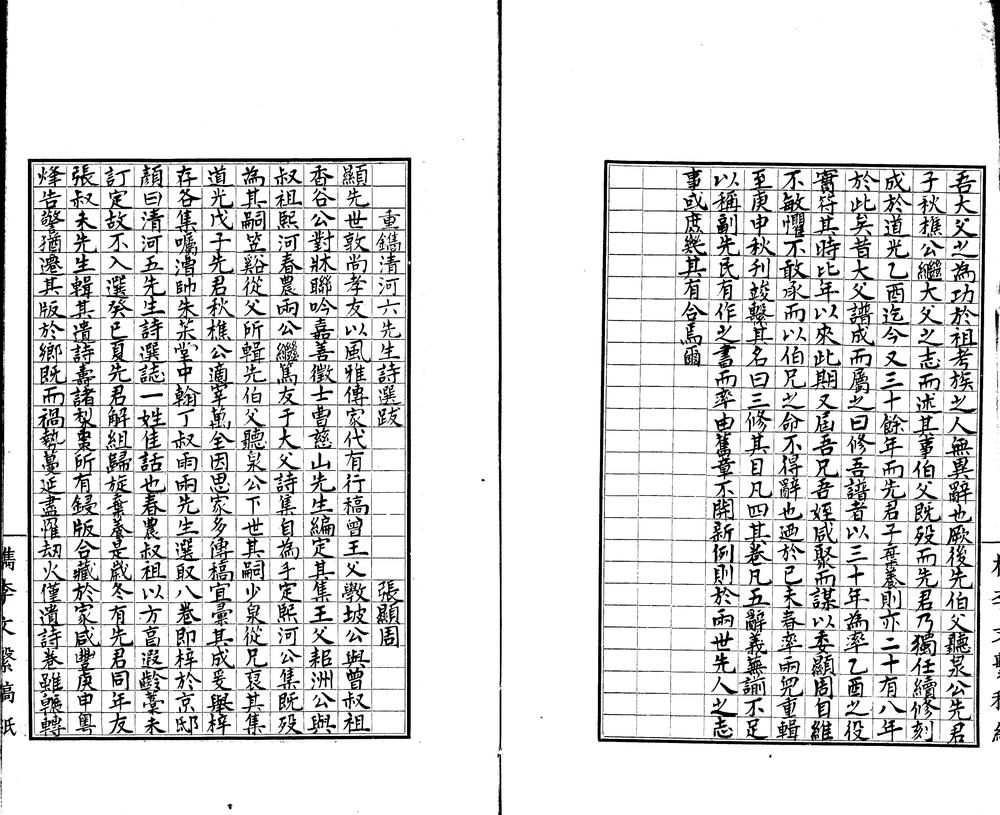 吾大父之為功於祖考族之人無異辭也厥後先伯父聽泉公先君
子秋樵公繼大父之志而述其事伯父既歿而先君乃獨任續修刻
成於道光乙酉迄今又三十餘年而先君子棄養則亦二十有八年
於此矣昔大父譜成而屬之曰修吾譜者以三十年為率乙酉之役
實符其時比年以來此期又屆吾兄吾姪咸聚而謀以委顯周自維
不敏懼不敢承而以伯兄之命不得辭也迺於己未春率兩兒重輯
至庚申秋刊竣繫其名曰三修其目凡四其卷凡五辭義蕪譾不足
以稱副先民有作之書而率由舊章不開新例則於兩世先人之志
事或庶幾其有合焉爾
重鐫清河六先生詩選跋
張顯周
顯先世敦尚孝友以風雅傳家代有行稿曾王父斆坡公與曾叔祖
香谷公對牀聯吟嘉善徵士曹慈山先生編定其集王父耜洲公與
叔祖熙河春農雨公繼篤友于大父詩集自為手定熙河公集既歿
為其嗣笠谿從父所輯先伯父聽泉公下世其嗣少泉從兄裒其集
道光戊子先君秋樵公適宰萬全因思家多傳稿宜彙其成爰舉梓
存各集囑漕帥朱茮堂中翰丁叔雨兩先生選取八卷即梓於京邸
顏曰清河五先生詩選誌一姓佳話也春農叔祖以方高遐齡藁未
訂定故不入選癸巳夏先君解組歸旋棄養是歲冬有先君同年友
張叔未先生輯其遺詩壽諸梨棗所有鋟版合藏於家咸豐庚申粵
烽告警猶遷其版於鄉既而禍勢蔓延盡罹劫火僅遺詩卷雖輾轉
檇李文繫稿紙